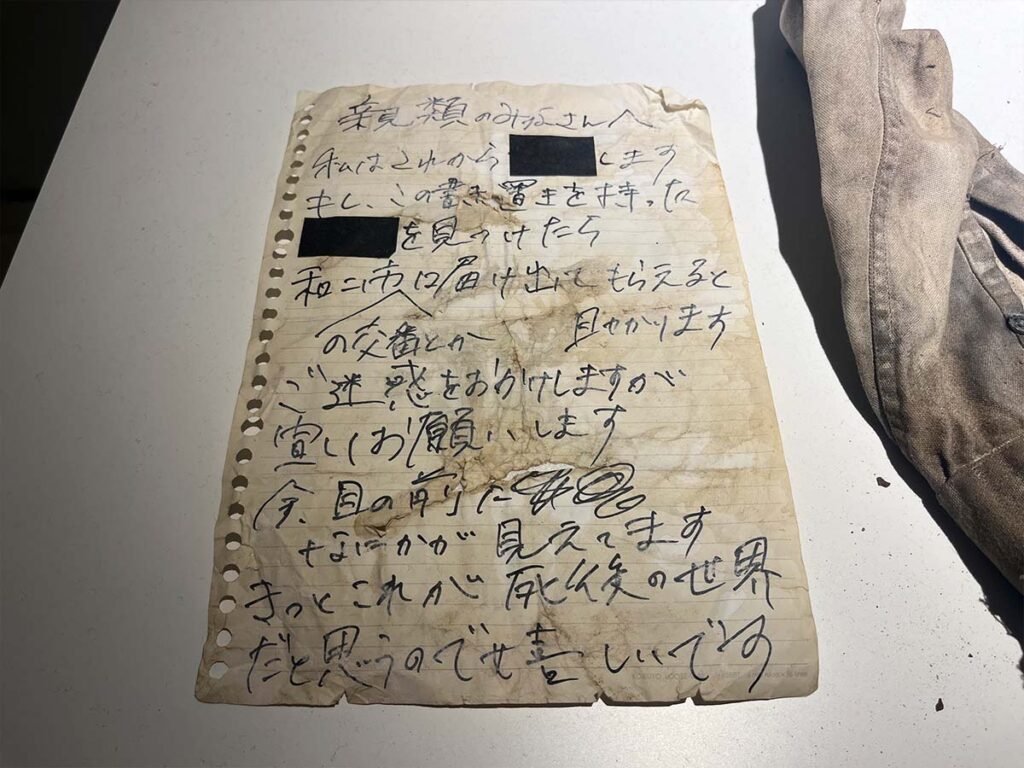 親類のみなさんへ
私はこれから します
もし、この書き置きを持った
を見つけたら
和二市に届け出てもらえると
の交番とかへ 助かります
ご迷惑をおかけしますが
宜しくお願いします
今、目の前に
なにかが見えてます
きっとこれが死後の世界
だと思うので 喜しいです